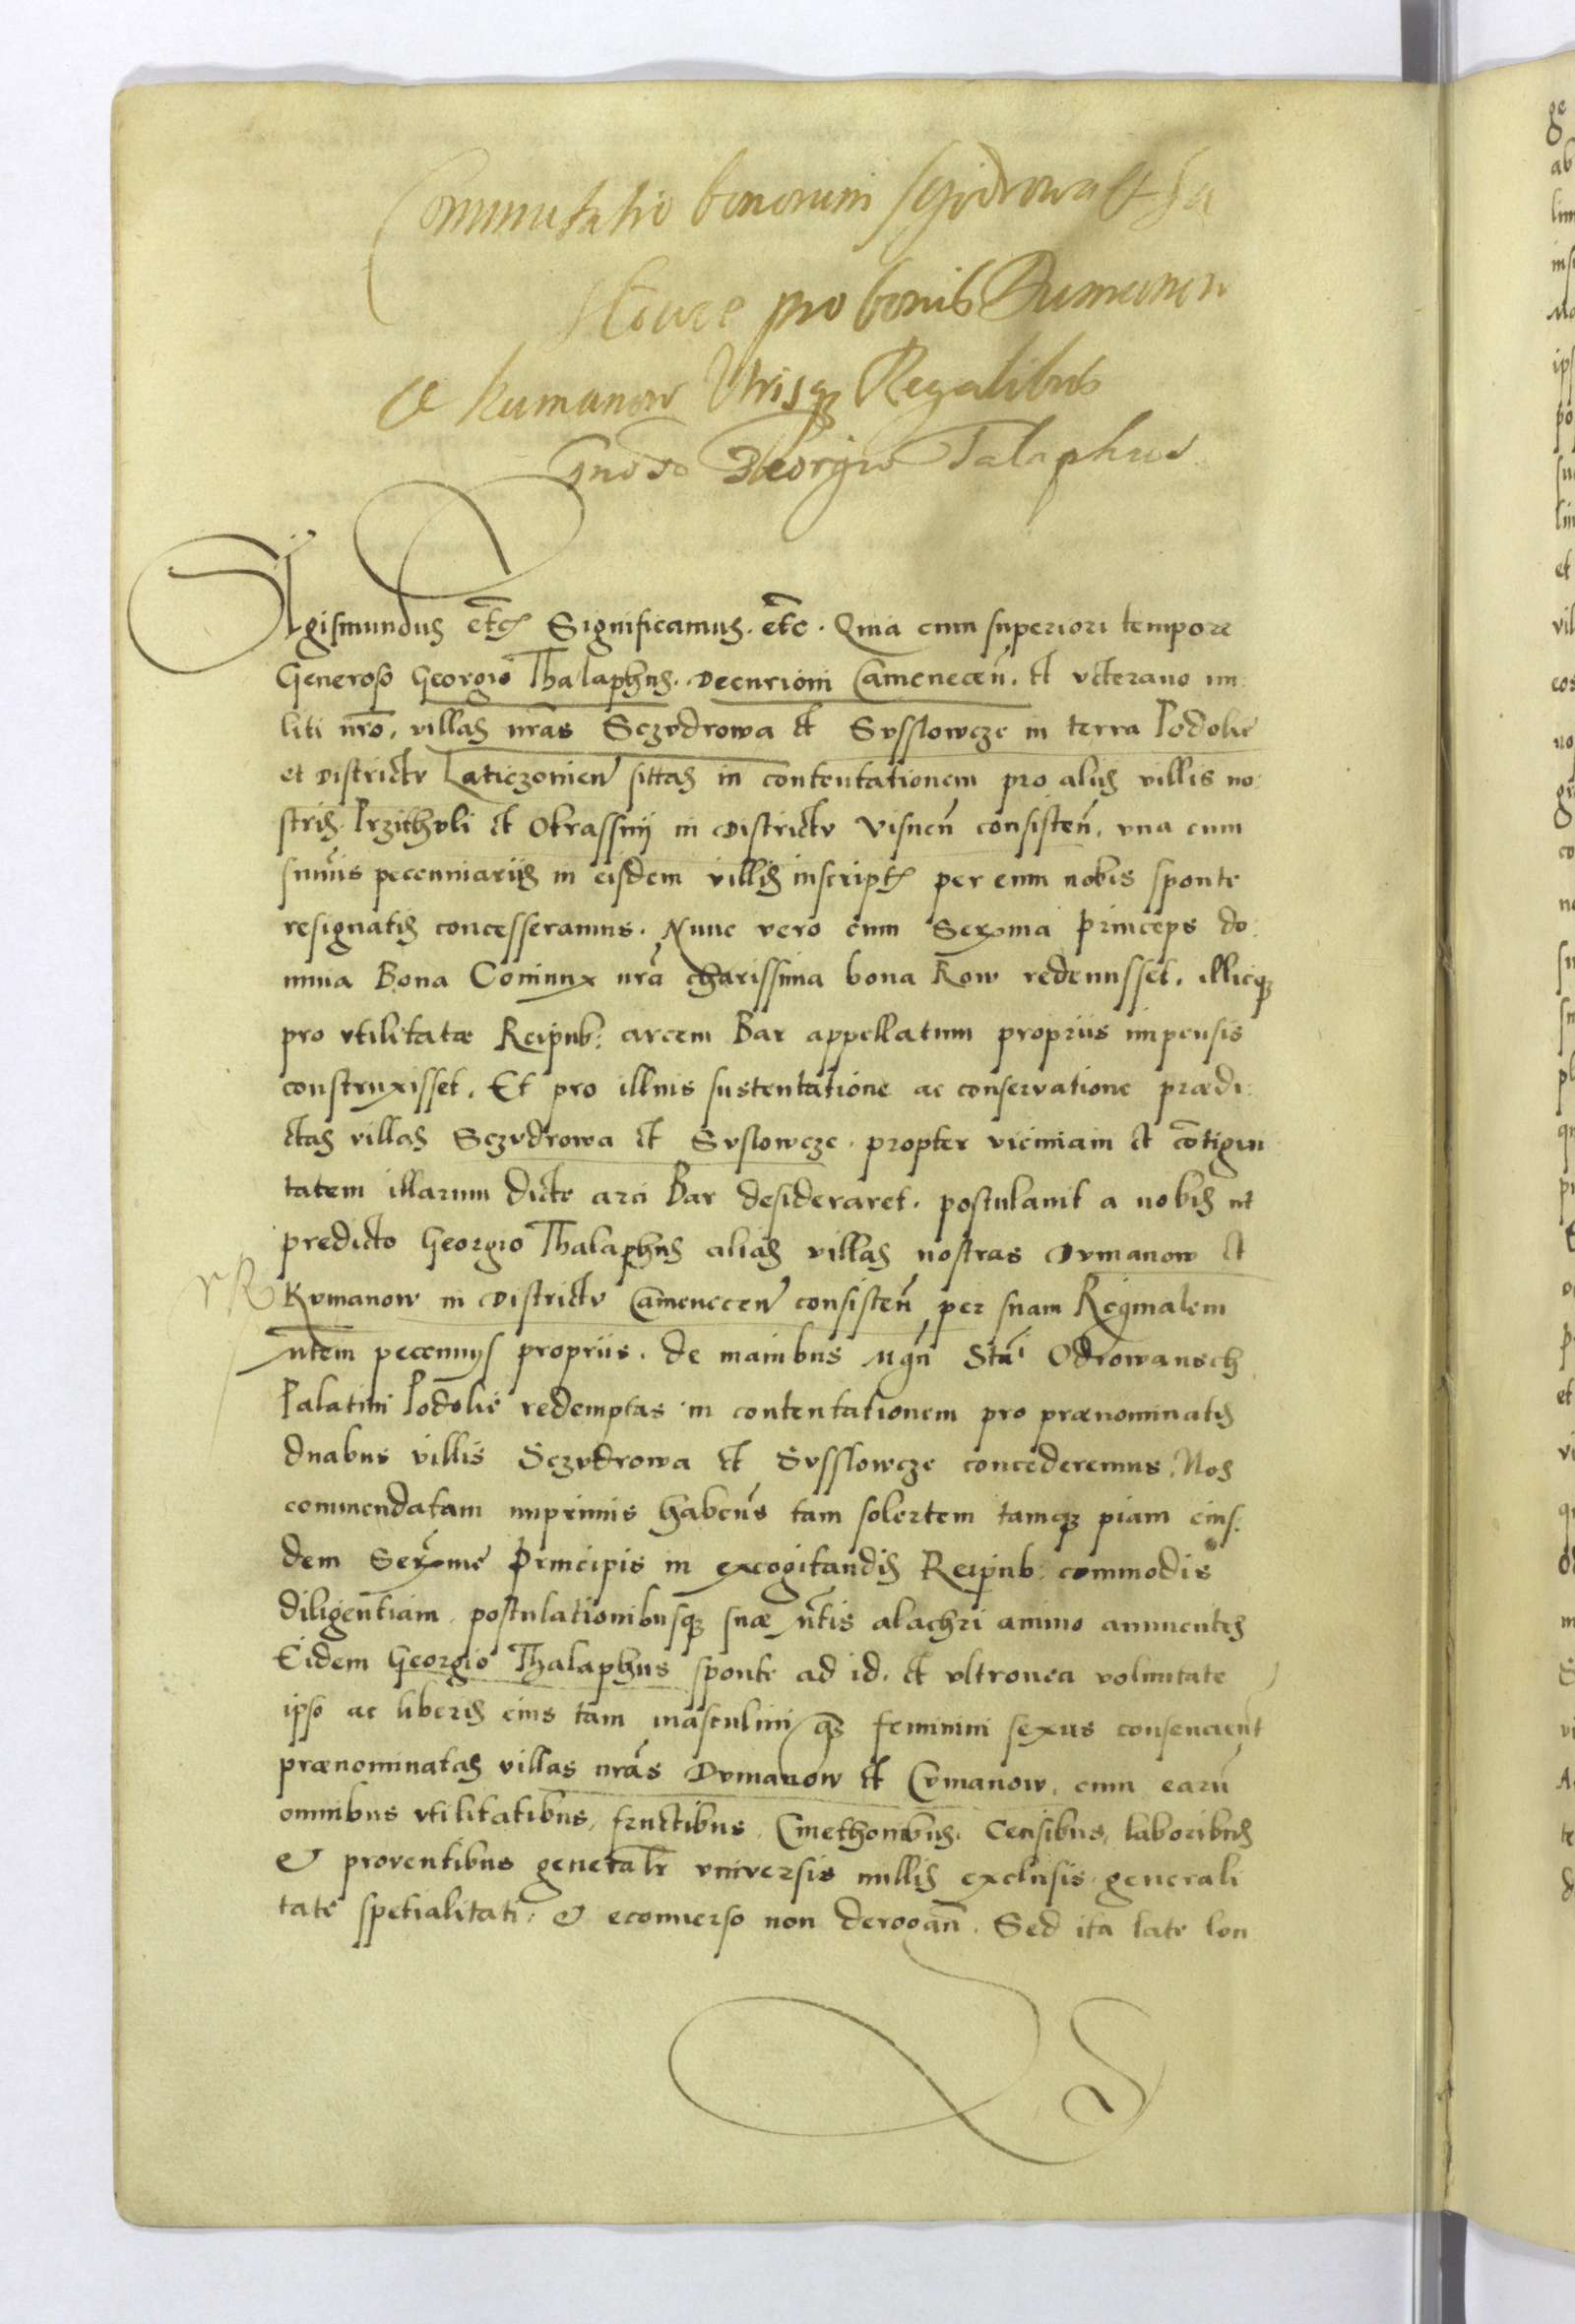 Commutatio bonorum Sczidrowa et Su
slowce pro bonis Dumanow
et kumanow Utrisq Regalibus
Gnoso Georgio Talaphus
Sigismundus etc Significamus. etc. Quia cum superiori tempore
Generoso Georgio Thalaphus. Decurioni Camenecen. et veterano mi:
liti nro, villas nras Sczvdrowa et Svsslowcze in terra Podolie
et Districtv Laticzonien sittas in contentationem pro alijs villis no:
stris. Przithvli et Okrassnij in Districtv Visnen consisten, vna cum
summis pecenniarijs in eisdem villis inscriptis per eum nobis sponte
resignatis concesseramus. Nunc vero cum Serma Princeps do:
mina Bona Coniunx nra charissima bona Row redemisset, illicq
pro vtilitatæ Reipub: arcem Bar appellatum propriis impensis
construxisset. Et pro illius sustentatione ac conservatione prædi:
ctas villas Sczvdrowa et Svslowcze, propter viciniam et cotigui
tatem illarum dicte arci Bar desideraret, postulauit a nobis ut
predicto Georgio Thalaphus alias villas nostras Dvmanow et
Kvmanow in Districtv Camenecen consisten, per suam Reginalem
Mtem pecennijs propriis, de manibus Mgn Stai Odrowansch
Palatini Podolie redemptas in contentationem pro prænominatis
duabus villis Sczvdrowa et Svsslowcze concederemus. Nos
commendatam imprimis habens tam solertem tamq piam eius:
dem Serme Principis in excogitandis Reipub: commodis
diligentiam, postulationibusq suæ Mtis alachri animo annuentes
Eidem Georgio Thalaphus sponte ad id, et vltronea voluntate
ipso ac liberis eius tam masculini q feminini sexus consencient
prænominatas villas nras Dvmanow et Cvmanow, cum earu
omnibus vtilitatibus, fructibus, Cmethonibus, Censibus, laboribus
& proventibus generalr vniversis nullis exclusis, generali
tate spetialitati, & econuerso non derogan. Sed ita late lon